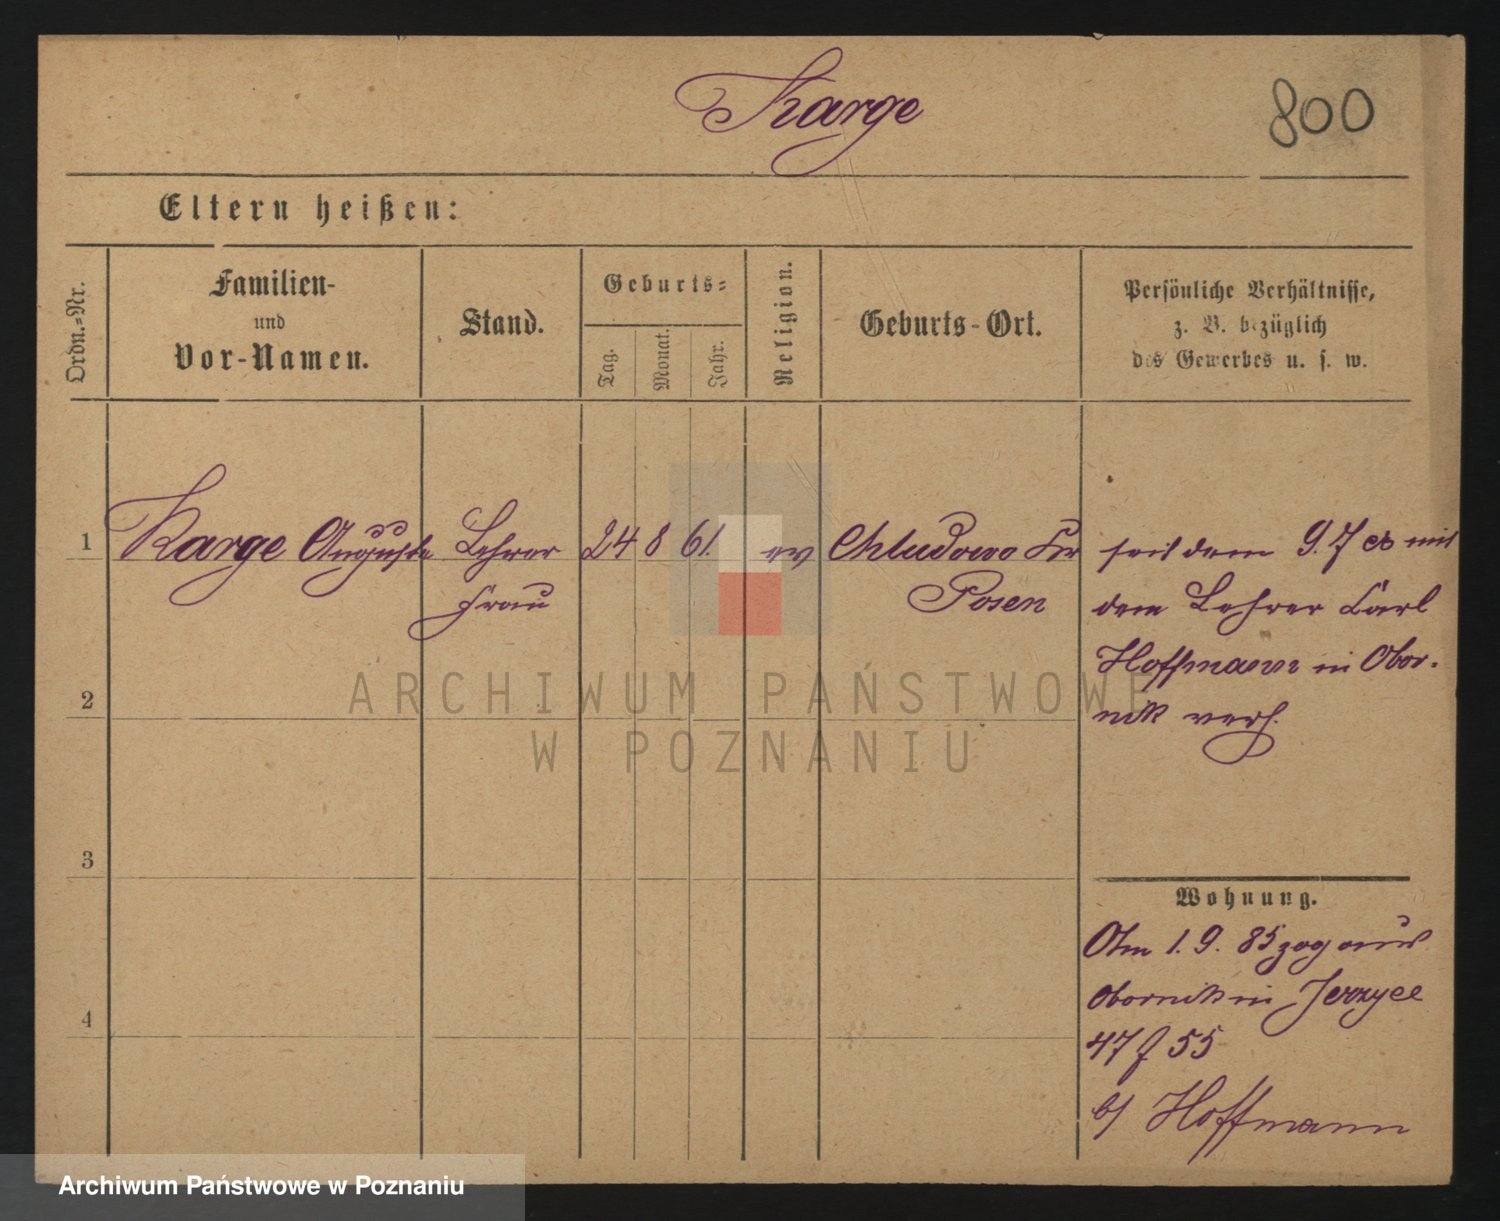 Karge
800
Eltern heißen:
Ordn.-Nr.
Familien-
und
Vor-Namen.
Stand.
Geburts-
Tag.
Monat.
Jahr.
Religion.
Geburts-Ort.
Persönliche Verhältnisse,
z. B. bezüglich
des Gewerbes u. s. w.
1
Karge Auguste
Lehrer
Frau
24 8 61.
ev
Chludowo Kr
Posen
seit dem 9.7 cr mit
dem Lehrer Carl
Hoffmann in Obor-
nik verh.
2
3
4
Wohnung.
Am 1. 9. 85 zog aus
Obornik in Jerzyce
47 f 55
b/ Hoffmann
ARCHIWUM PAŃSTWOWE
W POZNANIU
Archiwum Państwowe w Poznaniu